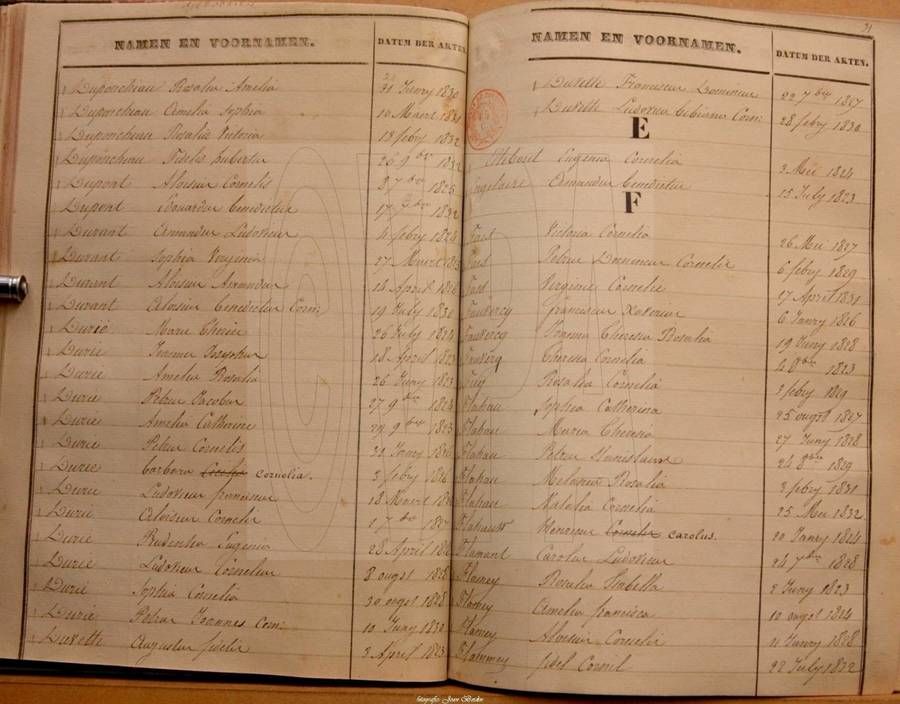 NAMEN EN VOORNAMEN. DATUM DER AKTEN.
Duponcheau Rosalia Amelia 21 Janry 1830
Duponcheau Amelia Sophia 10 Maart 1831
Duponcheau Rosalia Victoria 18 febry 1832
Duponcheau Fidelis hubertus 26 9bre 1832
Dupont Aloisius Cornelis 8 7bre 1825
Dupont Eduardus Benedictus 17 7bre 1832
Durant Armandus Ludovicus 4 febry 1824
Durant Sophia Virginia 27 Maart
Durant Aloisius Amandus 14 April
Durant Aloisius Benedictus Corn: 19 July 1830
Durie Marie Therese 26 July 1824
Durie Joanna 18 April 1823
Durie Amelia Rosalia 26 Juny 1823
Durie Petrus Jacobus 27 9bre 1824
Durie Amelia Catharine 29 9bre 1825
Durie Petrus Cornelis 31 Janry
Durie Barbara Cornelia. 3 febry
Durie Ludovicus franciscus 18 Maart
Durie Aloisius Cornelis 1 7bre
Durie Prudentia Eugenia 28 April
Durie Ludovicus Cornelius 8 ougst 1828
Durie Sophia Cornelia 30 ougst 1828
Durie Petrus Joannes Corn: 10 Juny 1830
Duvette Augustus fidelis 3 April 1823
31
NAMEN EN VOORNAMEN. DATUM DER AKTEN.
Duvette Franciscus Dominicus 22 7bre 1827
Duvette Ludovicus Bibiana Corn: 28 febry 1830
E
Eugenia Cornelia 3 Mei 1824
Engelaire Armandus Benedictus 15 July 1823
F
Victoria Cornelia 26 Mei 1827
Petrus Dominicus Cornelis 6 febry 1829
Virginia Cornelie 17 April 1831
franciscus Xaverius 6 Janry 1826
Joanna Theresia Rosalia 19 Juny 1828
Theresia Cornelia 4 8bre 1823
Rosalia Cornelia 2 febry
Flahau Sophia Catharina 25 ougst 1827
Flahau Maria Theresia 27 Juny 1828
Flahau Petrus Stanislaus 24 8bre 1829
Flahau Melanie Rosalia 2 febry 1831
Flahau Natalia Cornelia 25 Mei 1832
Flahaut Henricus Cornelis carolus. 20 Janry 1824
Flamant Carolus Ludovicus 24 7bre 1828
Flamey Rosalia Isabella 2 Juny 1823
Flamey Amelia francisca 10 ougst 1824
Flamey Aloisius Cornelis 11 Janry 1828
Flammey fidel Cornil 22 July 1832
fotografie: Joan Beslin